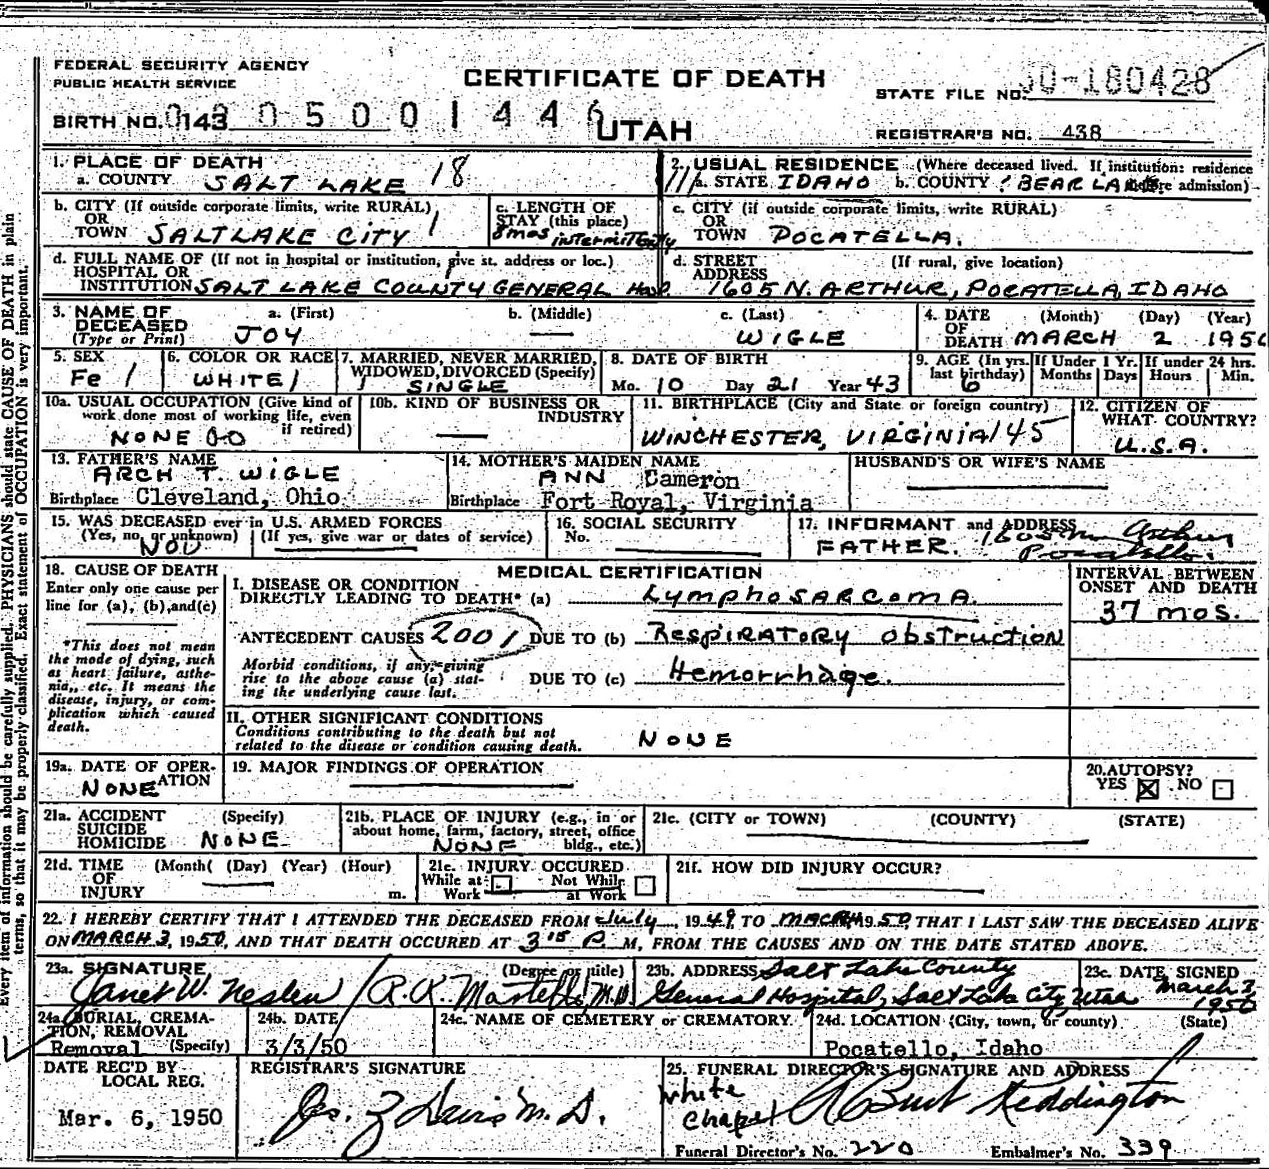 FEDERAL SECURITY AGENCY
PUBLIC HEALTH SERVICE
CERTIFICATE OF DEATH
STATE FILE NO. 50-180428
BIRTH NO. 0143 05001446
UTAH
REGISTRAR'S NO. 438
1. PLACE OF DEATH
a. COUNTY SALT LAKE 18
2. USUAL RESIDENCE (Where deceased lived. If institution: residence before admission)
a. STATE IDAHO b. COUNTY ? BEAR LAKE
b. CITY (If outside corporate limits, write RURAL)
OR
TOWN SALT LAKE CITY 1
c. LENGTH OF
STAY (this place)
8 mos intermittently
c. CITY (if outside corporate limits, write RURAL)
OR
TOWN POCATELLA.
d. FULL NAME OF (If not in hospital or institution, give st. address or loc.)
HOSPITAL OR
INSTITUTION SALT LAKE COUNTY GENERAL Hosp.
d. STREET (If rural, give location)
ADDRESS
1605 N. ARTHUR, POCATELLA, IDAHO
3. NAME OF DECEASED
(Type or Print)
a. (First) JOY
b. (Middle) —
c. (Last) WIGLE
4. DATE OF DEATH
(Month) (Day) (Year)
MARCH 2 1950
5. SEX
Fe 1
6. COLOR OR RACE
WHITE 1
7. MARRIED, NEVER MARRIED,
WIDOWED, DIVORCED (Specify)
1 SINGLE
8. DATE OF BIRTH
Mo. 10 Day 21 Year 43
9. AGE (In yrs. last birthday) 6
If Under 1 Yr. Months Days
If under 24 hrs. Hours Min.
10a. USUAL OCCUPATION (Give kind of
work done most of working life, even
if retired)
NONE 00
10b. KIND OF BUSINESS OR
INDUSTRY
—
11. BIRTHPLACE (City and State or foreign country)
WINCHESTER, VIRGINIA 145
12. CITIZEN OF
WHAT COUNTRY?
U.S.A.
13. FATHER'S NAME
ARCH T. WIGLE
Birthplace Cleveland, Ohio
14. MOTHER'S MAIDEN NAME
ANN Cameron
Birthplace Fort Royal, Virginia
HUSBAND'S OR WIFE'S NAME
15. WAS DECEASED ever in U.S. ARMED FORCES
(Yes, no, or unknown) (If yes, give war or dates of service)
16. SOCIAL SECURITY
No.
17. INFORMANT and ADDRESS
FATHER. 1605 N. Arthur
Pocatello.
18. CAUSE OF DEATH
Enter only one cause per
line for (a), (b), and (c)
*This does not mean
the mode of dying, such
as heart failure, asthe-
nia, etc. It means the
disease, injury, or com-
plication which caused
death.
MEDICAL CERTIFICATION
INTERVAL BETWEEN
ONSET AND DEATH
I. DISEASE OR CONDITION
DIRECTLY LEADING TO DEATH* (a) LYMPHOSARCOMA.
37 mos.
ANTECEDENT CAUSES 2001 DUE TO (b) RESPIRATORY obstruction
Morbid conditions, if any, giving
rise to the above cause (a) stat-
ing the underlying cause last.
DUE TO (c) Hemorrhage.
II. OTHER SIGNIFICANT CONDITIONS
Conditions contributing to the death but not
related to the disease or condition causing death.
NONE
19a. DATE OF OPER-
ATION
NONE
19. MAJOR FINDINGS OF OPERATION
20. AUTOPSY?
YES ☒ NO ☐
21a. ACCIDENT (Specify)
SUICIDE
HOMICIDE NONE
21b. PLACE OF INJURY (e.g., in or
about home, farm, factory, street, office
bldg., etc.)
NONE
21c. (CITY or TOWN) (COUNTY) (STATE)
21d. TIME OF INJURY (Month) (Day) (Year) (Hour)
m.
21e. INJURY OCCURED
While at Work ☐ Not While at Work ☐
21f. HOW DID INJURY OCCUR?
22. I HEREBY CERTIFY THAT I ATTENDED THE DECEASED FROM July, 1949 TO MARCH, 1950, THAT I LAST SAW THE DECEASED ALIVE
ON MARCH 3, 1950, AND THAT DEATH OCCURED AT 3 15 P M, FROM THE CAUSES AND ON THE DATE STATED ABOVE.
23a. SIGNATURE (Degree or title)
Janet W. Neslen / R.K. M.D.
23b. ADDRESS Salt Lake County
General Hospital, Salt Lake City, Utah
23c. DATE SIGNED
March 3, 1950
24a. BURIAL, CREMA-
TION, REMOVAL
Removal (Specify)
24b. DATE
3/3/50
24c. NAME OF CEMETERY or CREMATORY
24d. LOCATION (City, town, or county) (State)
Pocatello, Idaho
DATE REC'D BY
LOCAL REG.
Mar. 6, 1950
REGISTRAR'S SIGNATURE
25. FUNERAL DIRECTOR'S SIGNATURE AND ADDRESS
White
Chapel Burt Reddington
Funeral Director's No. 220 Embalmer's No. 339
Every item of information should be carefully supplied. PHYSICIANS should state CAUSE OF DEATH in plain
terms, so that it may be properly classified. Exact statement of OCCUPATION is very important.